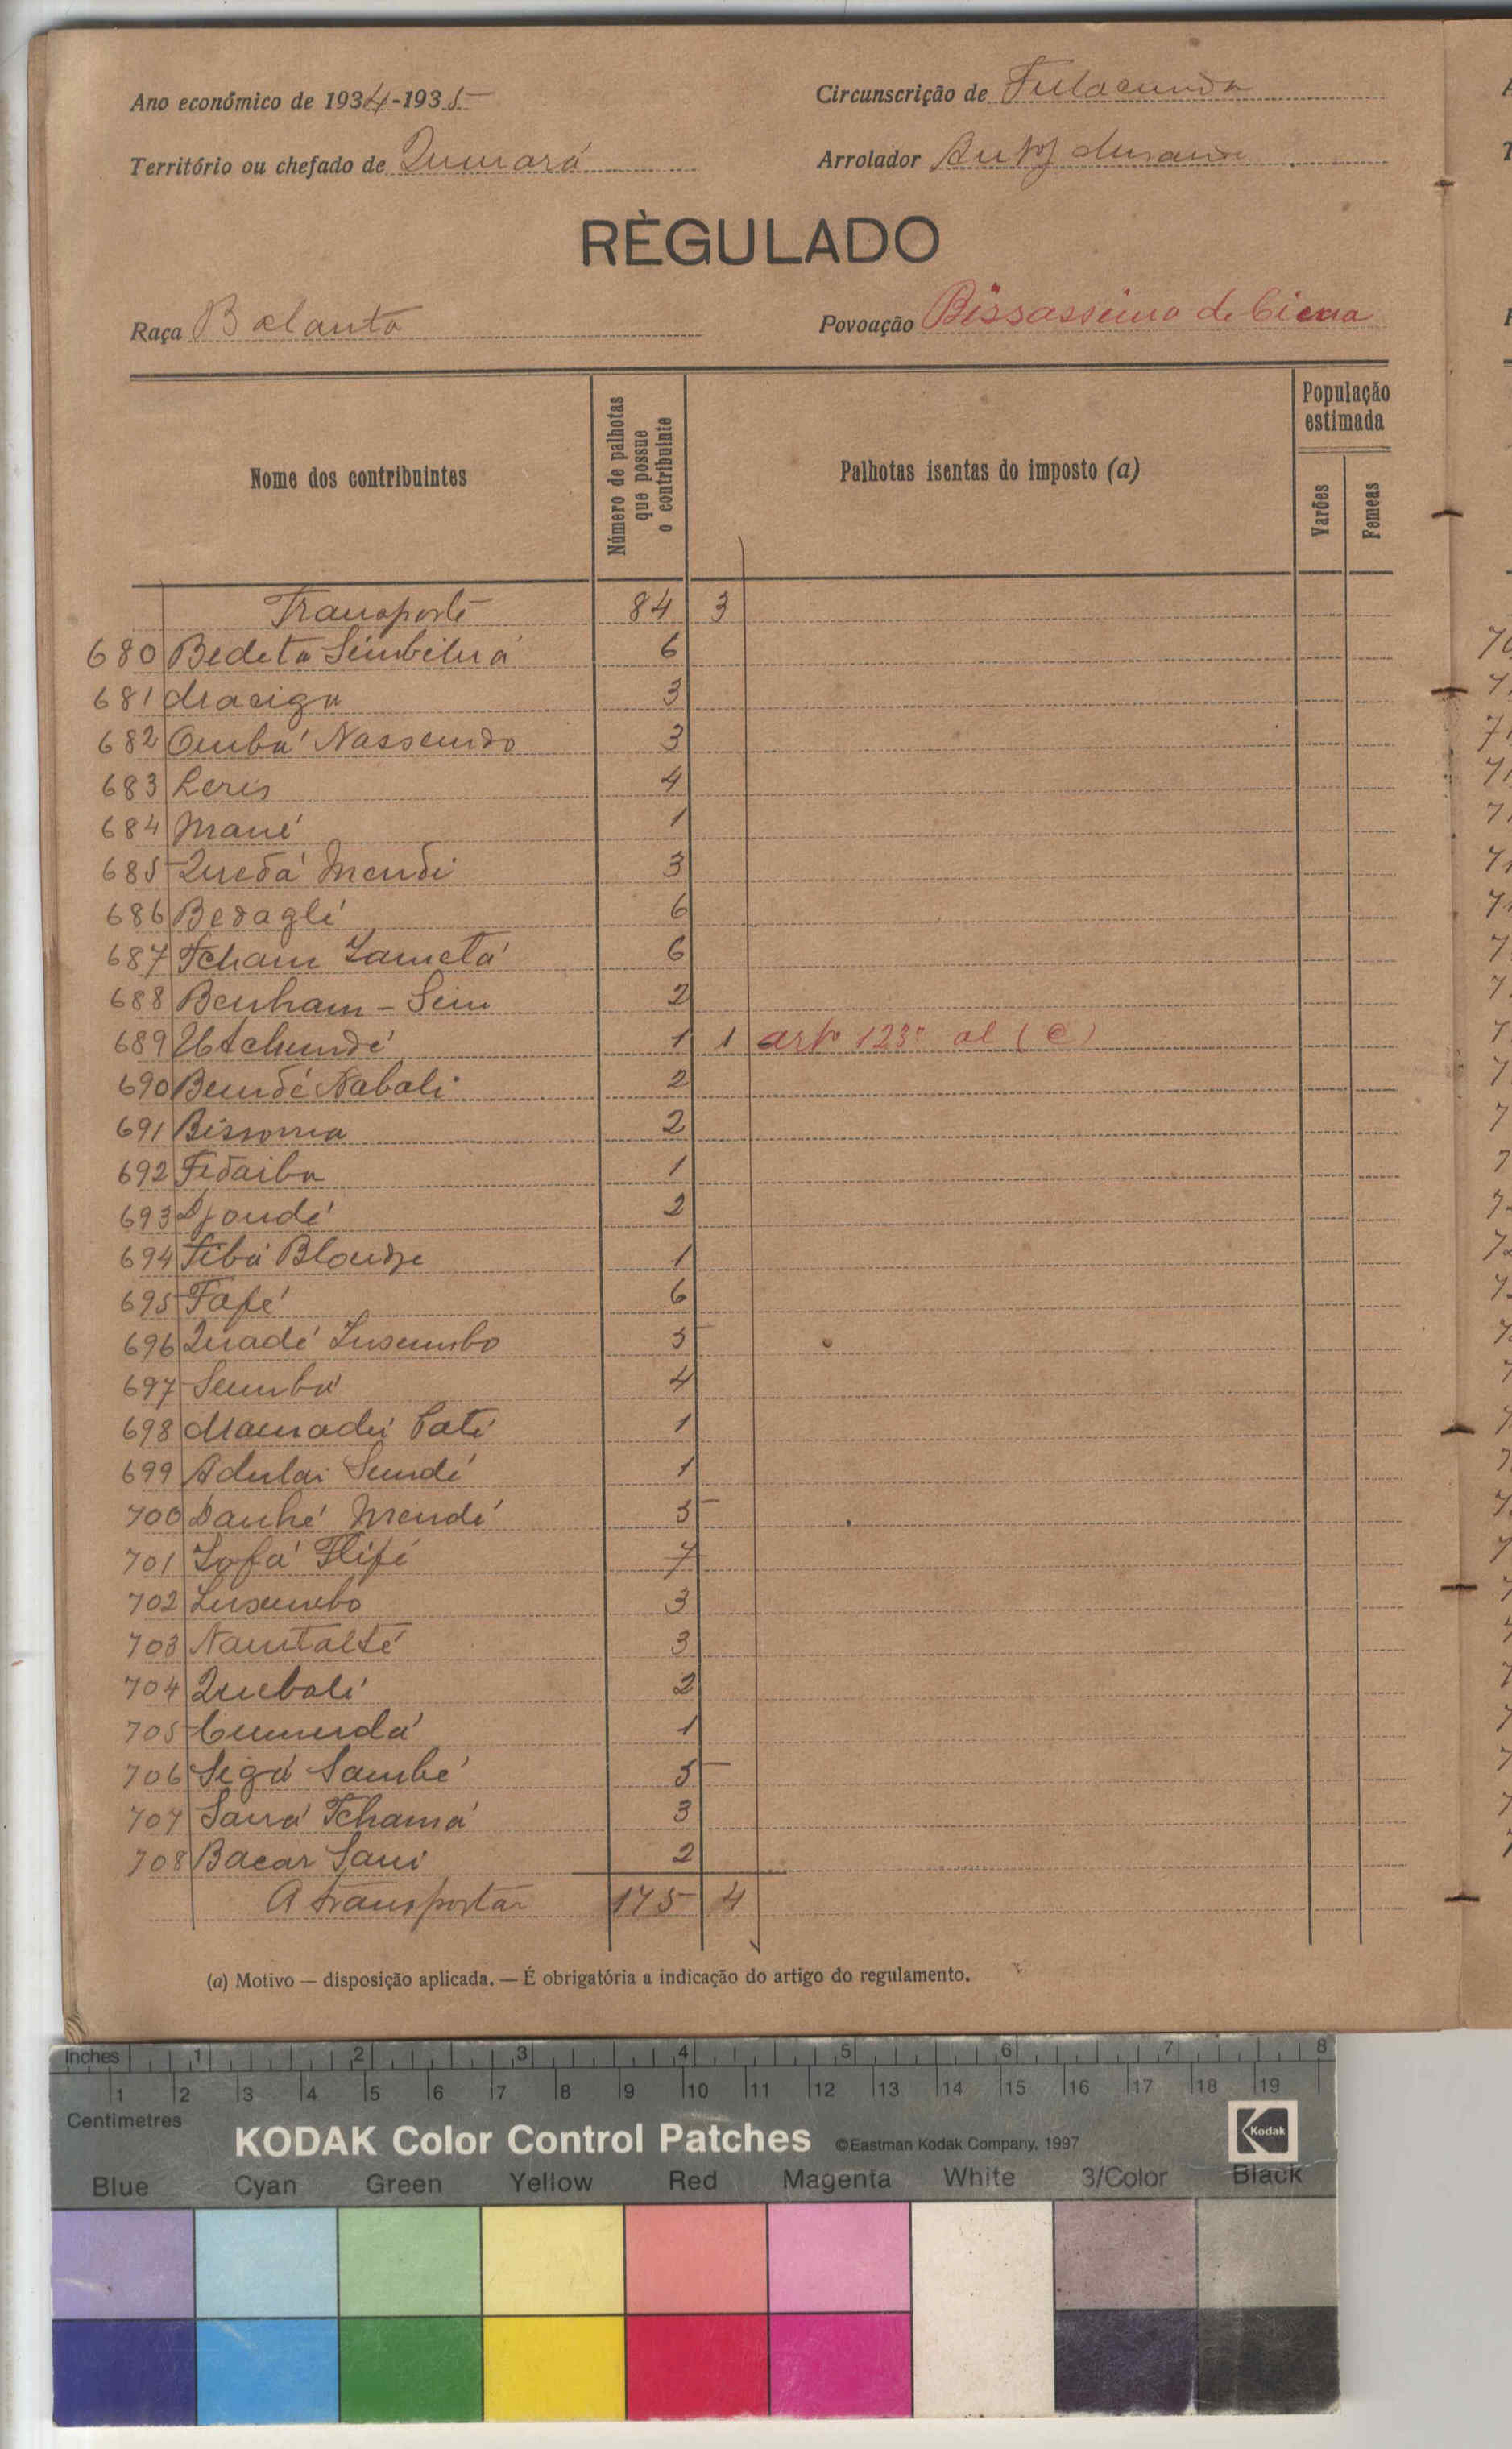 Ano económico de 1934-1935
Circunscrição de Fulacunda
Território ou chefado de Quinará
Arrolador
RÈGULADO
Raça Balanta
Povoação Bissassema de Cima
Nome dos contribuintes
Número de palhotas que possue o contribuinte
Palhotas isentas do imposto (a)
População estimada
Varões
Femeas
Transporte 84 3
680 Bedeta 6
681 3
682 3
683 Leris 4
684 Mané 1
685 Quedá Mendi 3
686 Bedaglé 6
687 Tcham Lametá 6
688 Benham - Sim 2
689 1 1 artº 123º al (e)
690 Bemdé Nabali 2
691 2
692 Fidaiba 1
693 Djondé 2
694 1
695 Fafé 6
696 Quadé 5
697 Sumbá 4
698 Mamadú Cati 1
699 Adulai Sundé 1
700 Danhé Mendé 5
701 Lofá Flifé 7
702 3
703 Namtalté 3
704 Quebali 2
705 1
706 Sigá Sambé 5
707 Saná Tchamá 3
708 Bacar Sani 2
A transportar 175 4
(a) Motivo — disposição aplicada. — É obrigatória a indicação do artigo do regulamento.
Inches 1 2 3 4 5 6 7 8
1 2 3 4 5 6 7 8 9 10 11 12 13 14 15 16 17 18 19
Centimetres
KODAK Color Control Patches ©Eastman Kodak Company, 1997 Kodak
Blue Cyan Green Yellow Red Magenta White 3/Color Black